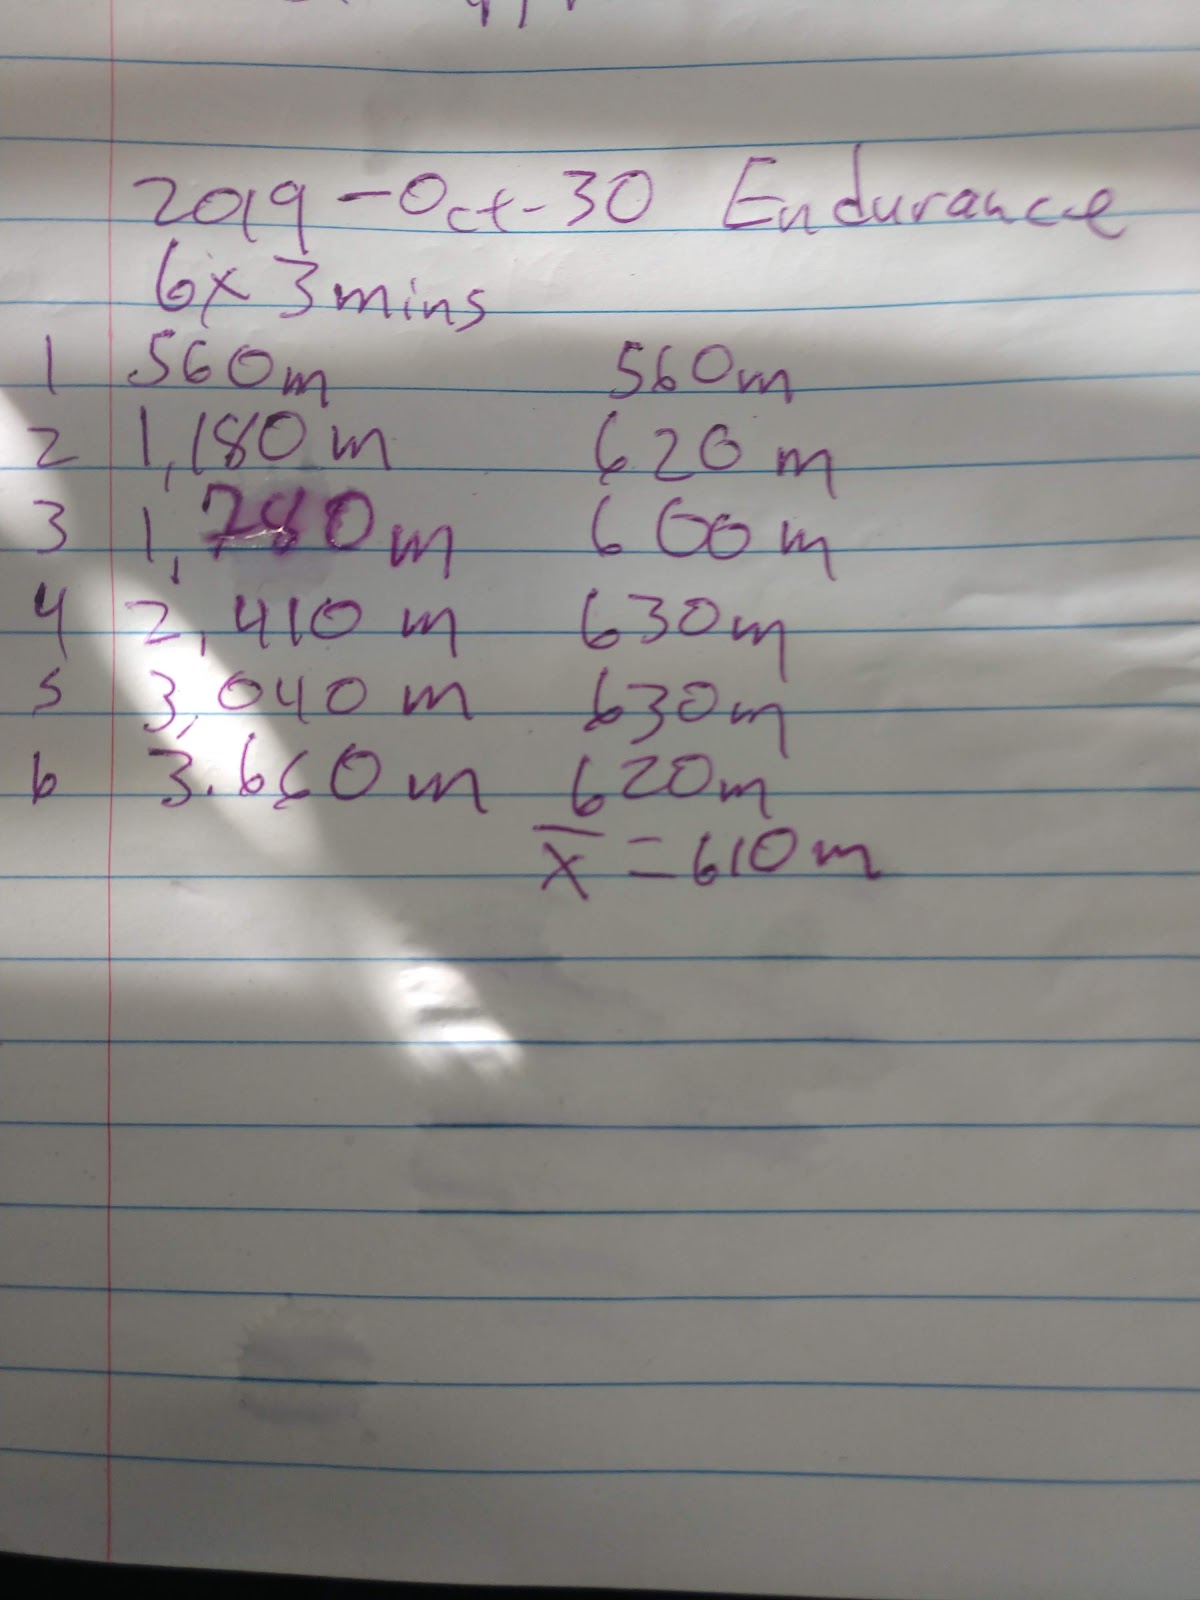 2019-Oct-30 Endurance
6x 3mins
1 560m 560m
2 1,180m 620m
3 1,780m 600m
4 2,410m 630m
5 3,040m 630m
6 3.660m 620m
x̅ = 610m